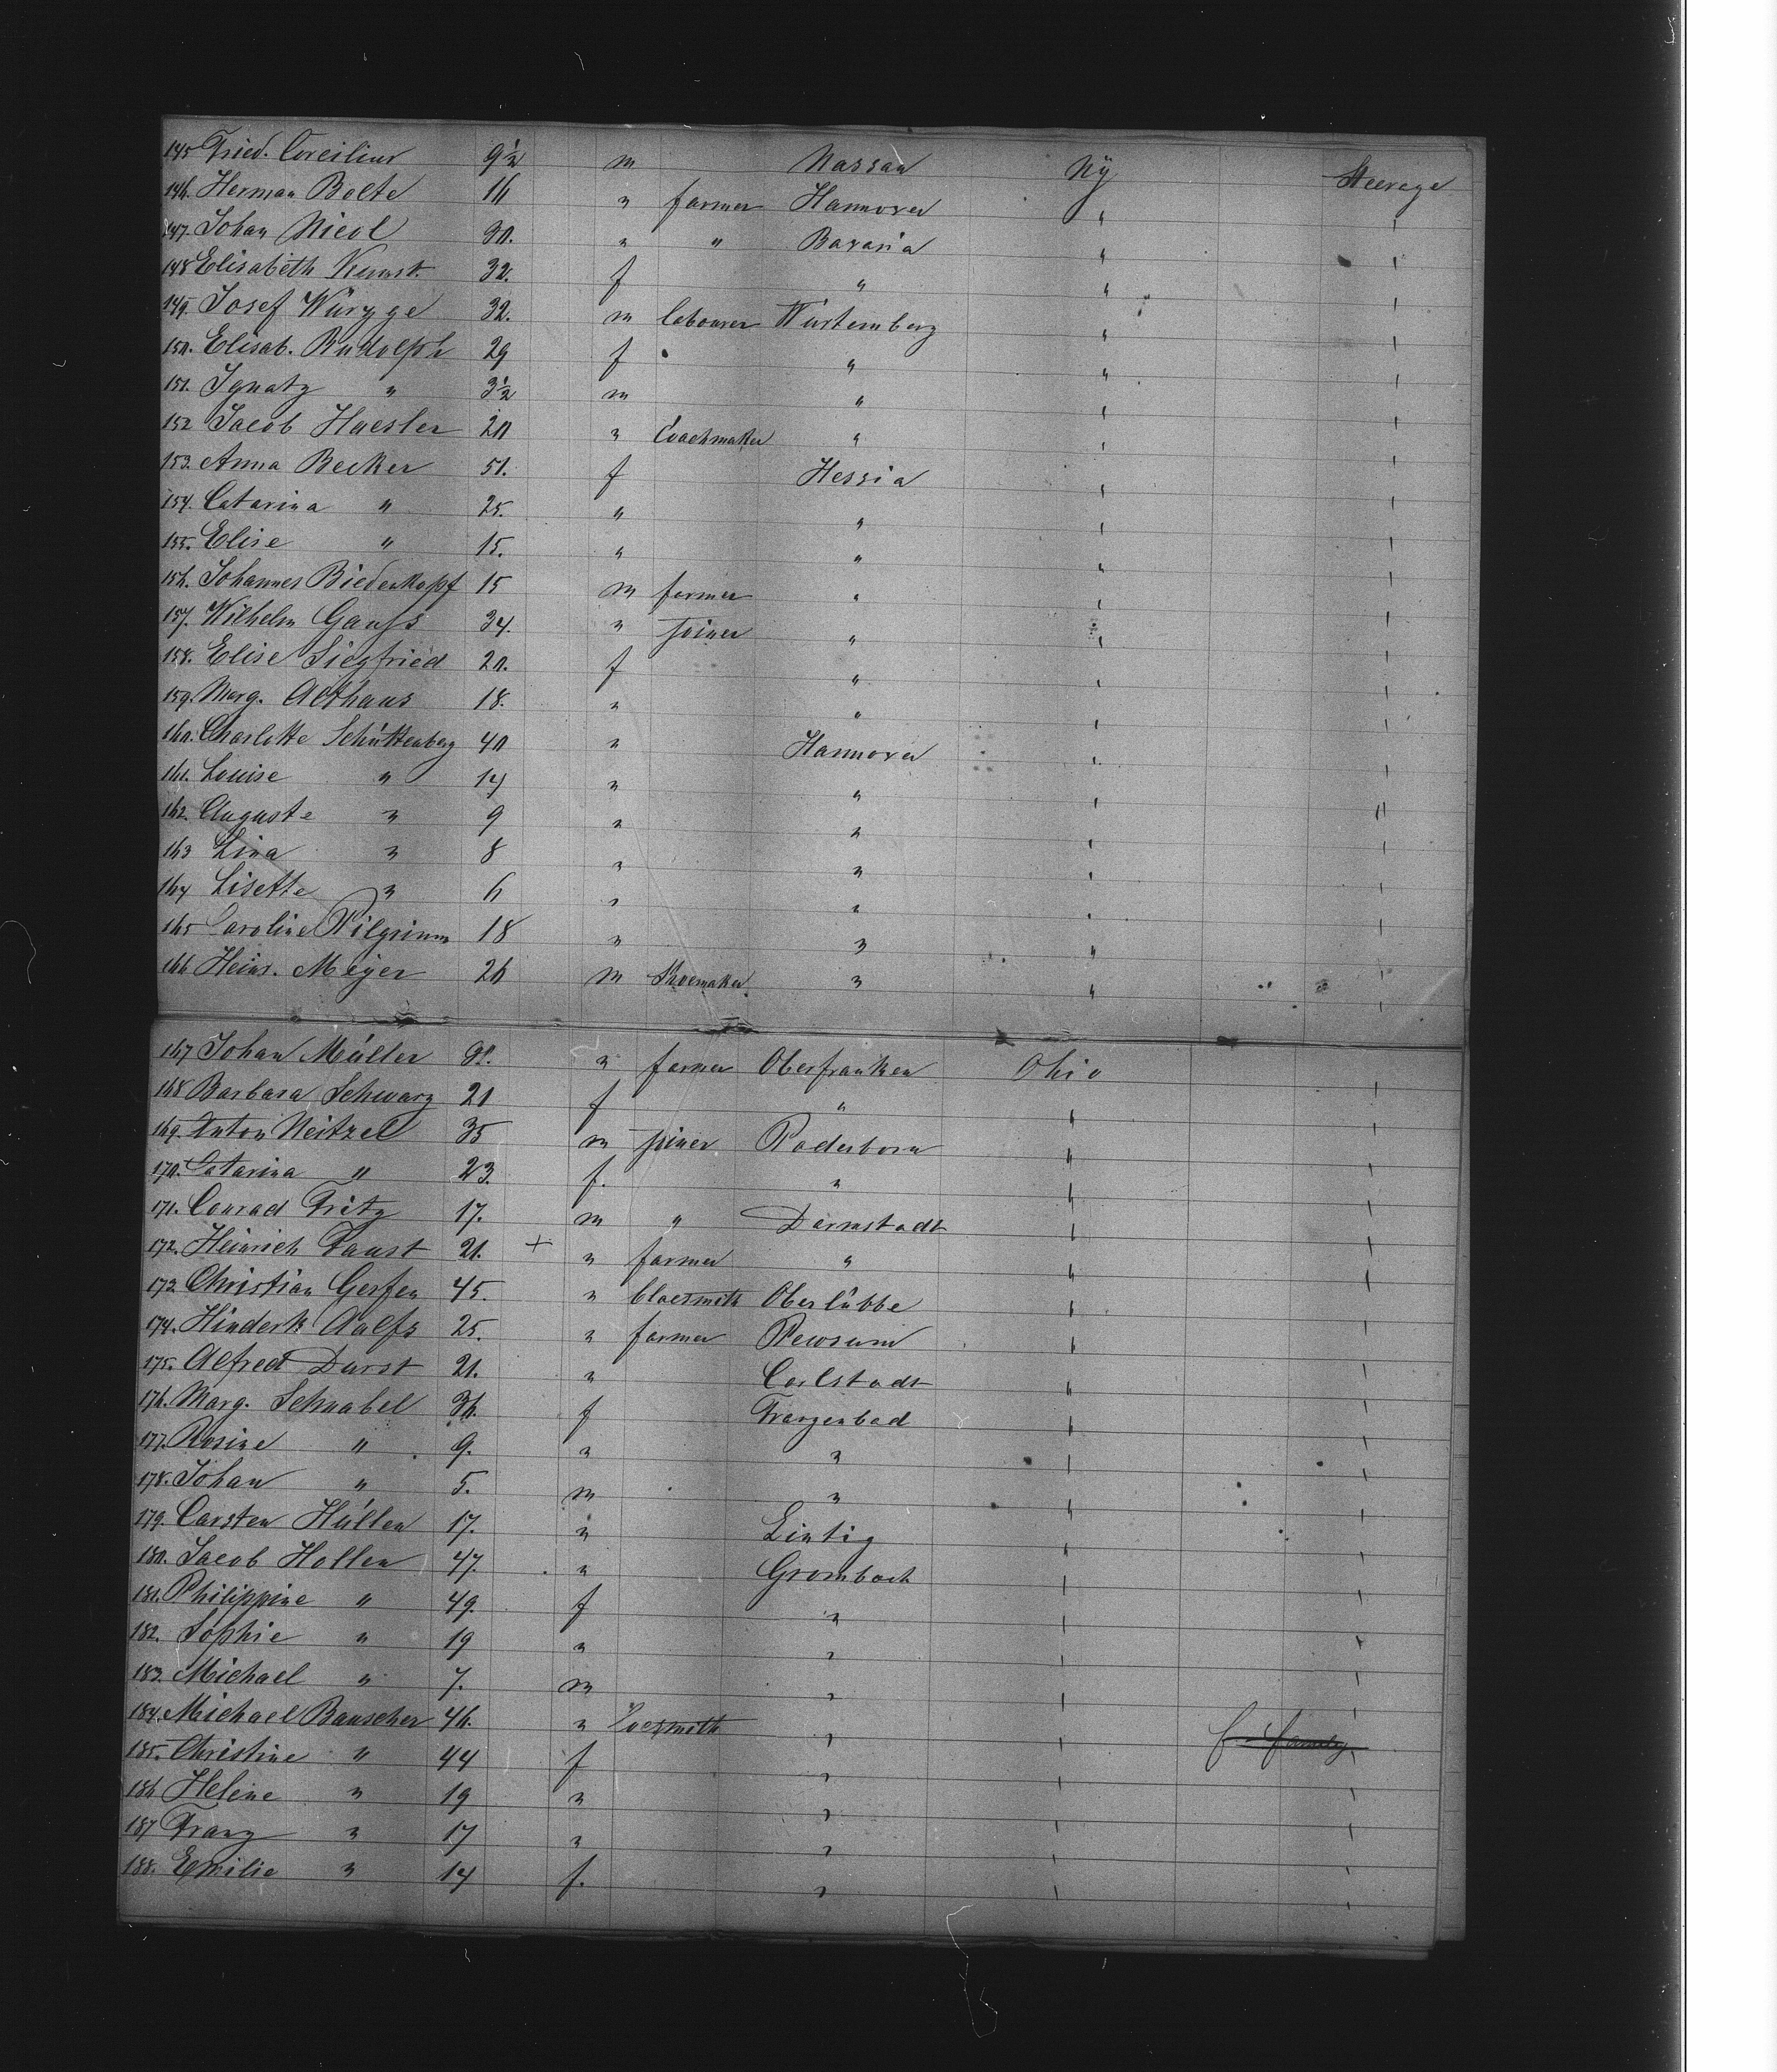 145 Fried. Corcilius 9½ m Nassau Ny Steerage
146. Herman Bolte 16 " farmer Hannover " "
147. Johan Nicol 30. " " Bavaria " "
148 Elisabeth Kunst 32. f " " "
149. Josef Würgge 32. m labourer Würtemberg " "
150. Elisab. Rudolph 29 f " " "
151. Ignatz " 3½ m " " "
152 Jacob Haesler 20 " Coachmaker " " "
153. Anna Becker 51. f Hessia " "
154. Catarina " 25. " " " "
155. Elise " 15. " " " "
156. Johannes Biedenkopf 15 m farmer " " "
157. Wilhelm Gauss 34. " joiner " " "
158. Elise Siegfried 20. f " " "
159. Marg. Althaus 18. " " " "
160. Charlotte Schüttenberg 40 " Hannover " "
161. Louise " 14 " " " "
162. Auguste " 9 " " " "
163 Lina " 8 " " " "
164 Lisette " 6 " " " "
165 Caroline Pilgrimm 18 " " " "
166 Heinr. Meyer 26 m Shoemaker " " "
167 Johan Müller " farmer Oberfranken Ohio "
168 Barbara Schwarz 21 f " " "
169. Anton Neitzel 35 m joiner Paderborn " "
170. Catarina " 23. f. " " "
171. Conrad Fritz 17. m " Darmstadt " "
172. Heinrich Faust 21. + " farmer " " "
173. Christian Gerfen 45. " blacsmith Oberlübbe " "
174. Hinderk Aalfs 25. " farmer Pewsum " "
175. Alfred Durst 21. " Carlstadt " "
176. Marg. Schnabel 36. f Franzenbad " "
177. Rosine " 9. " " " "
178. Johan " 5. m " " "
179. Carsten Hüllen 17. " Lintig " "
180. Jacob Hollen 47. " Grombach " "
181. Philippine " 49. f " " "
182. Sophie " 19 " " " "
183. Michael " 7. m " " "
184. Michael Bauscher 46. " " " "
185. Christine " 44 f " " f family "
186 Helene " 19 " " " "
187 Franz " 17 " " " "
188. Emilie " 14 f. " " "